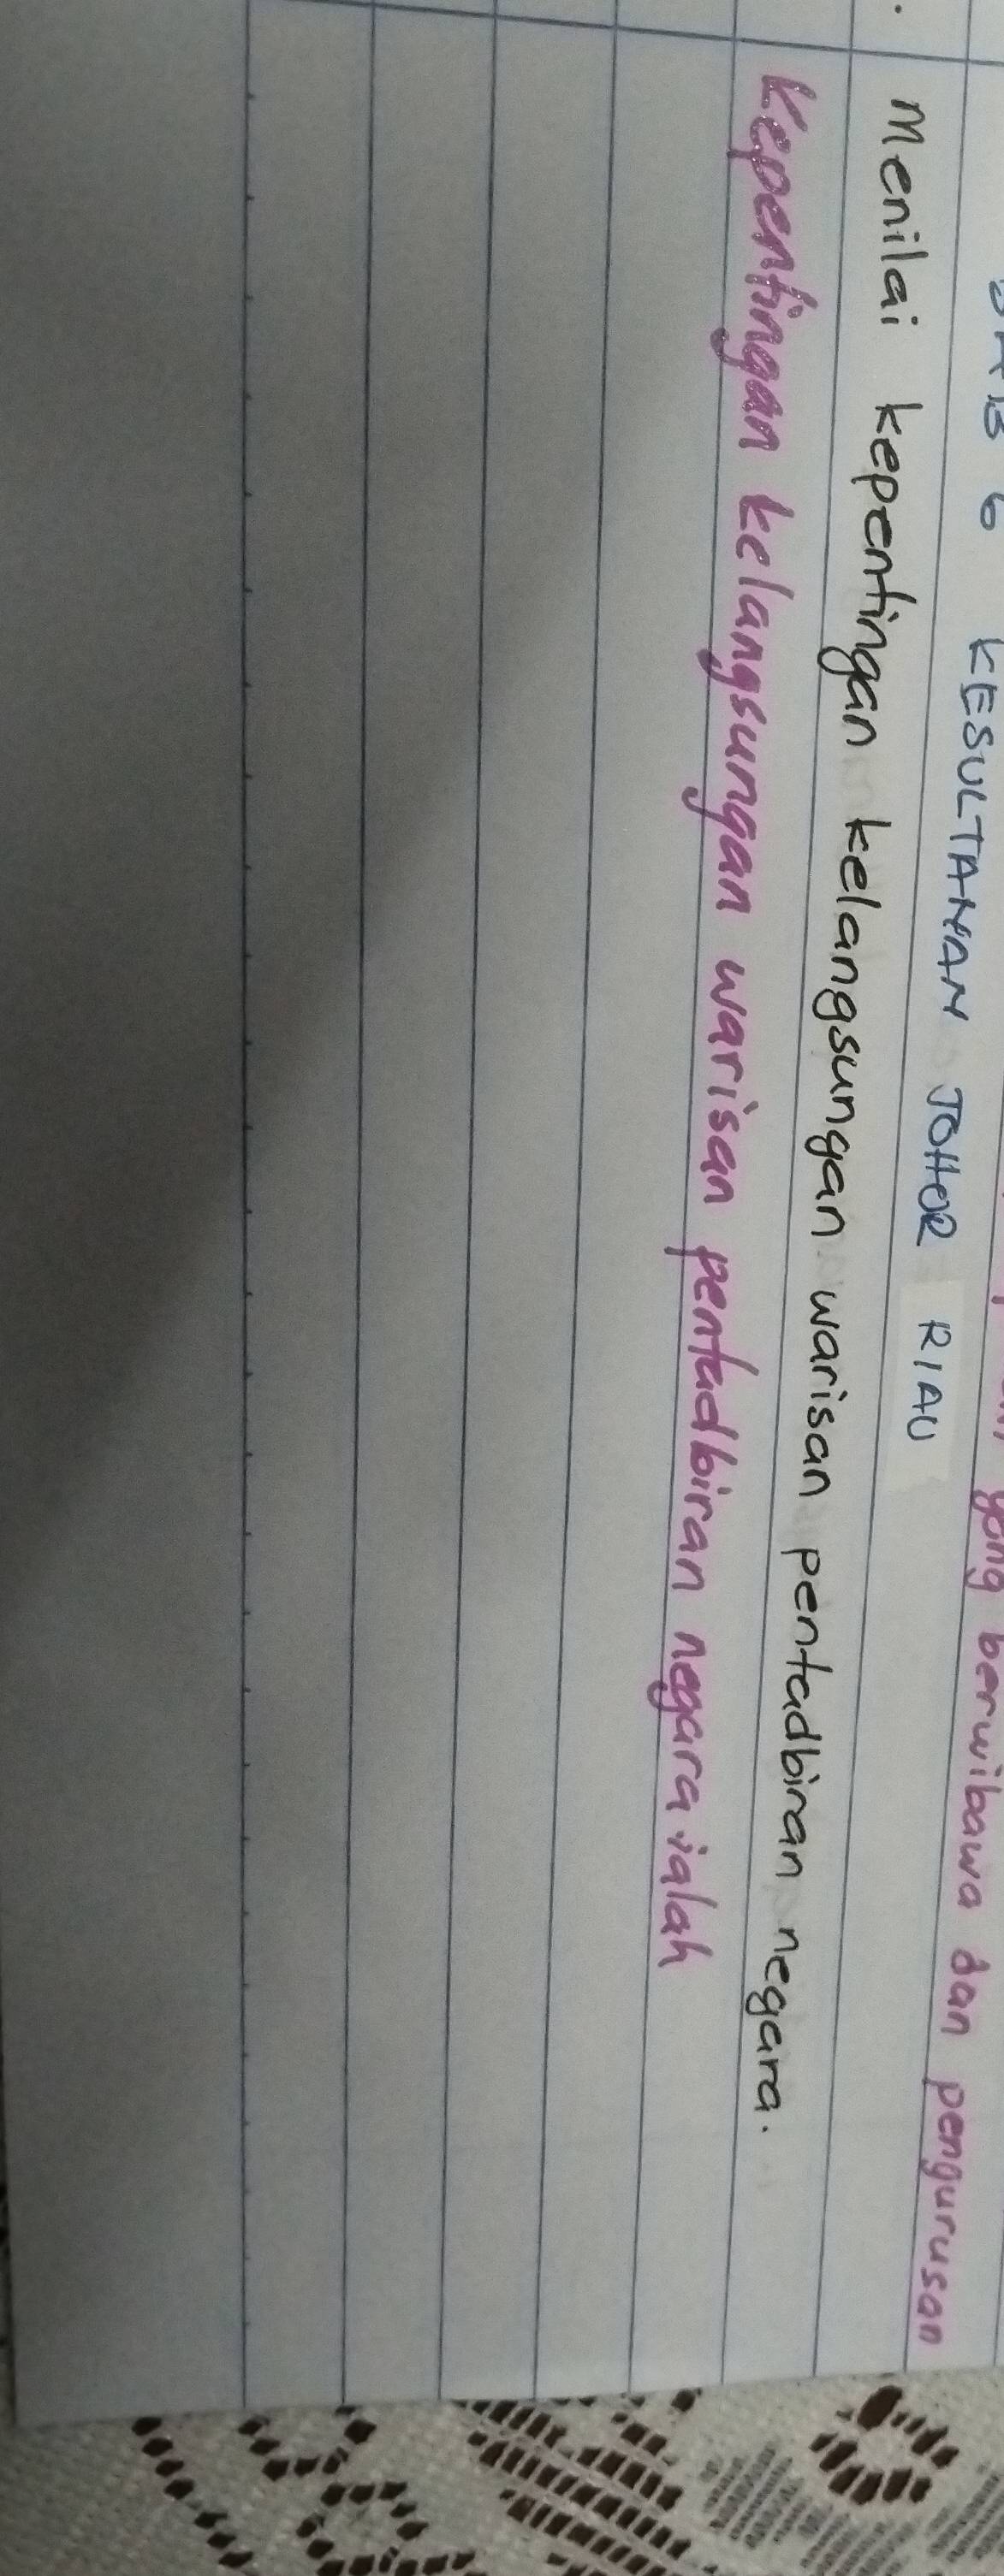 yang berwibawa dan pengurusan
BAB 6 KESULTANAN JOHOR RIAU
Menilai kepentingan kelangsungan warisan pentadbiran negara.
Kepentingan kelangsungan warisan pentadbiran negara ialah